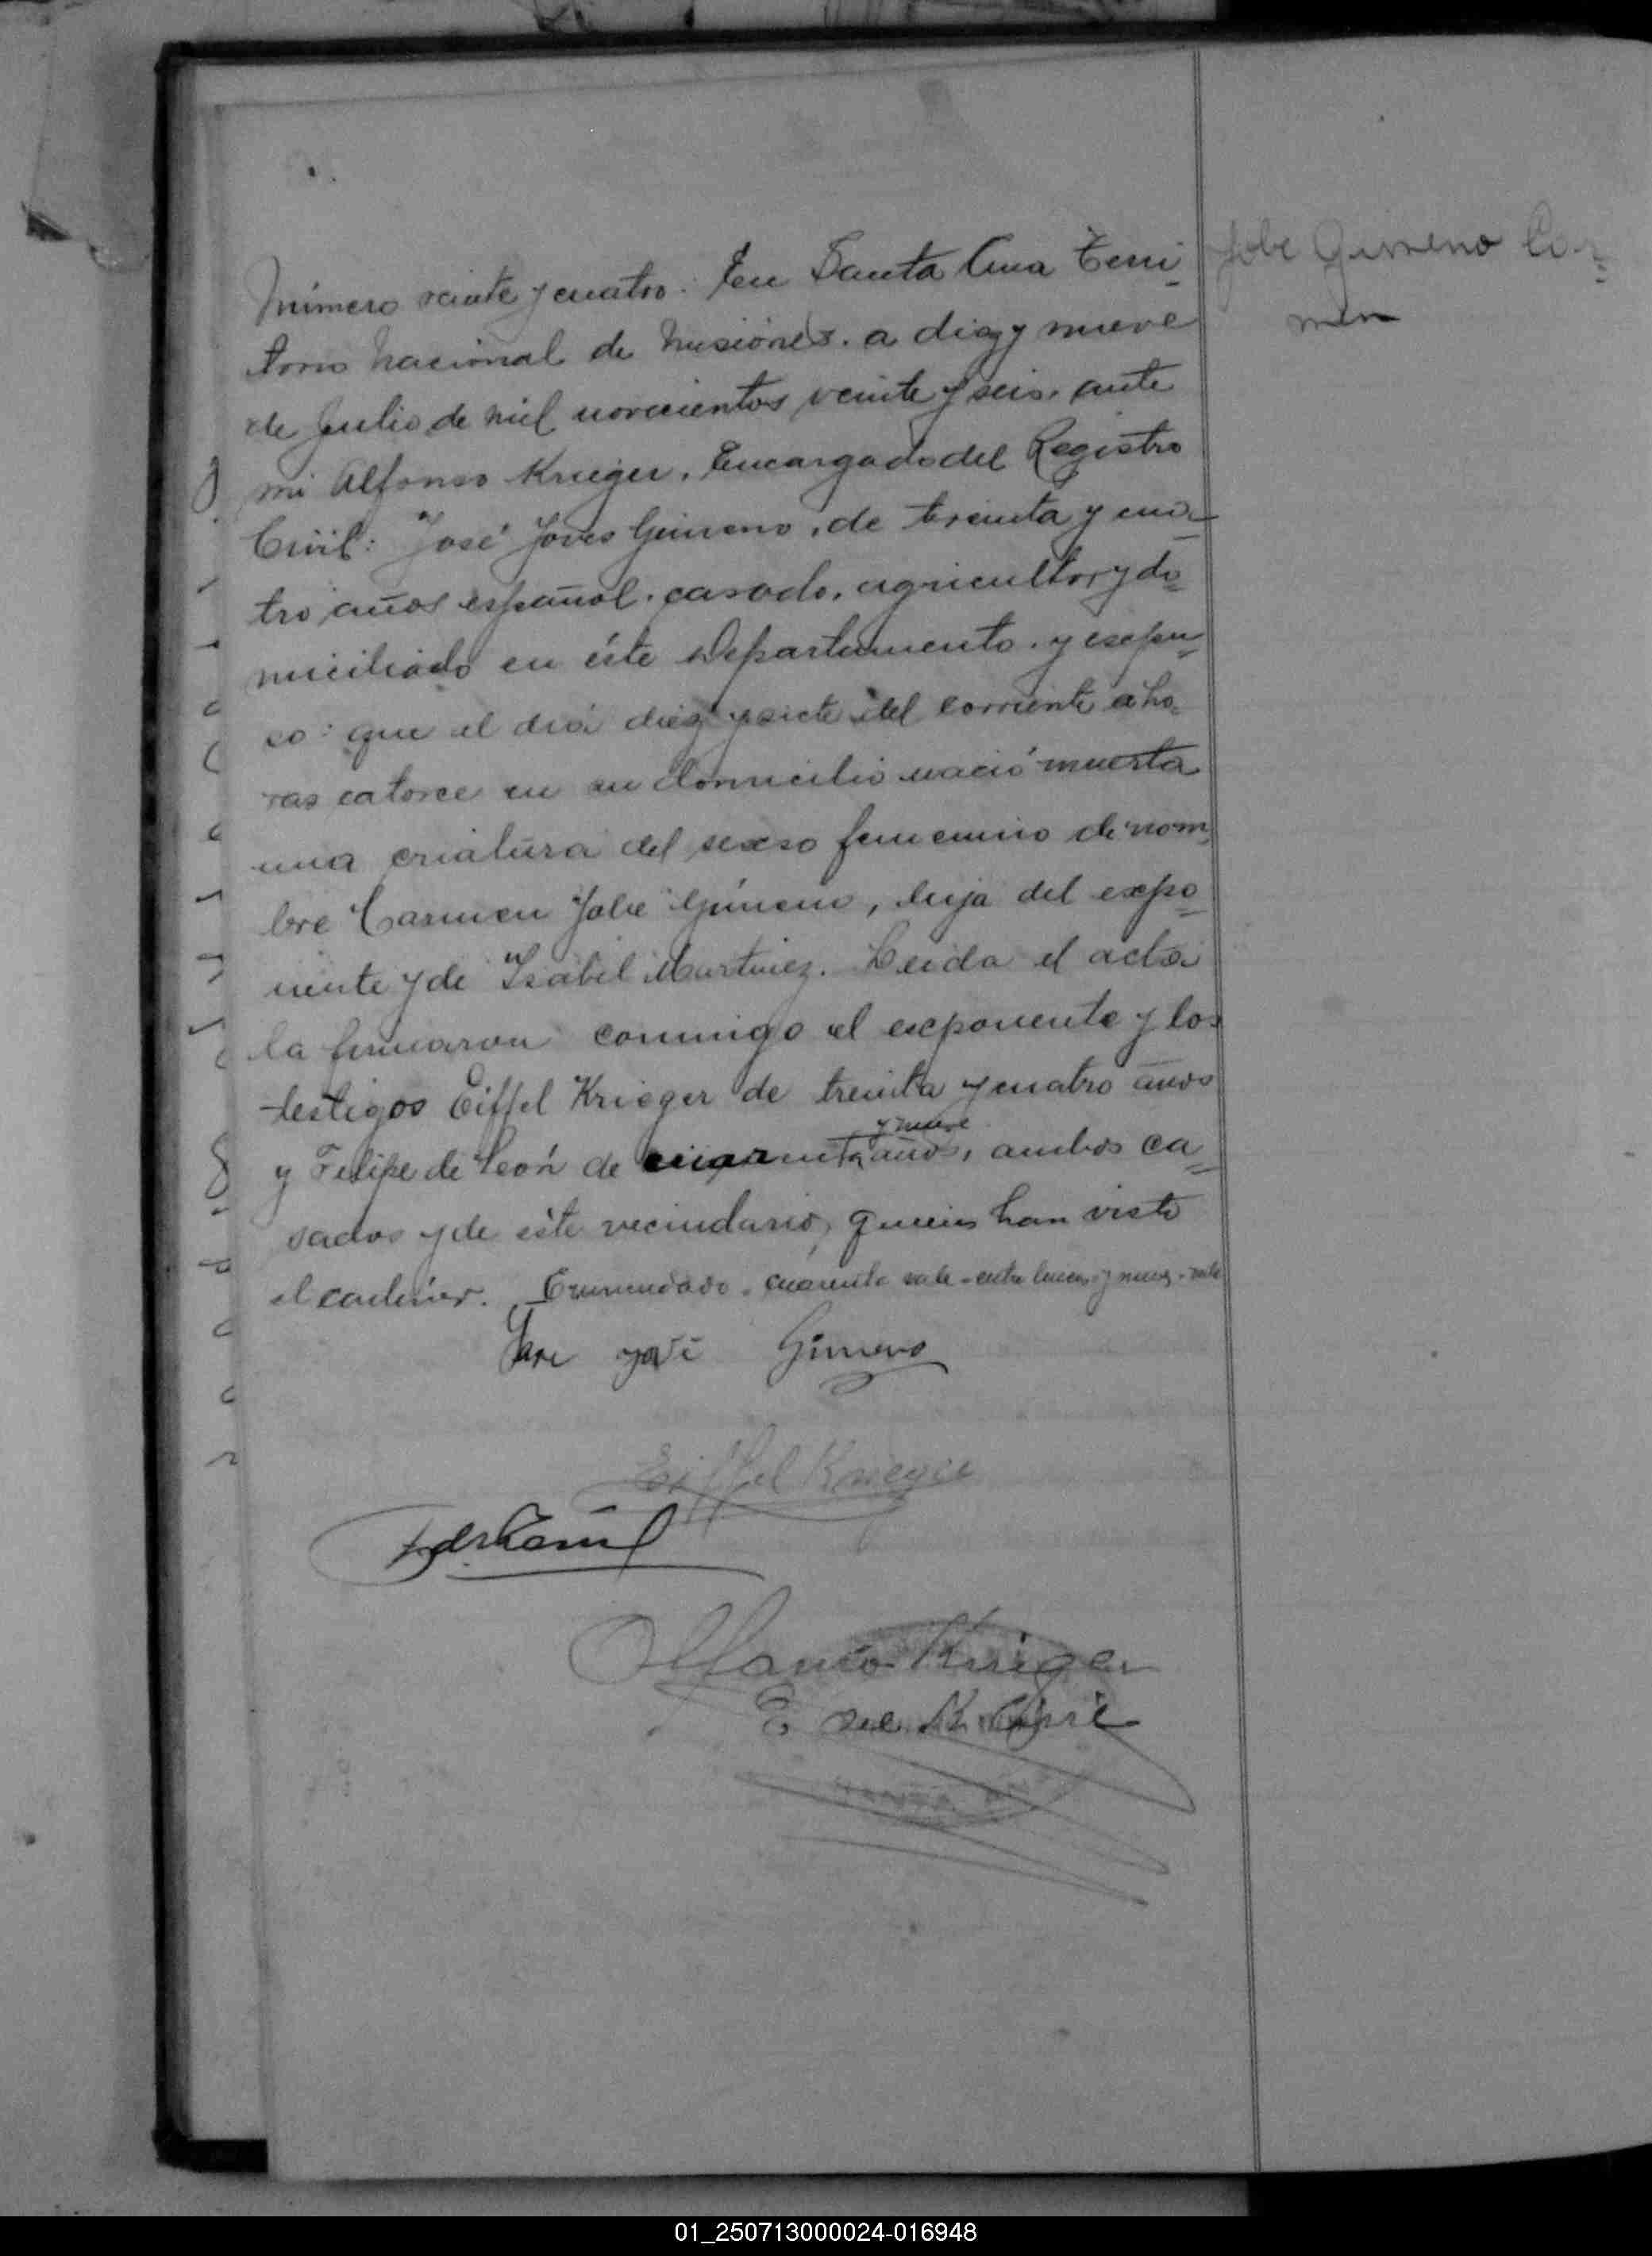 Jobe Gimeno Car=
men
Número veinte y cuatro. En Santa Ana Terri=
torio Nacional de Misiones. a diez y nueve
de Julio de mil novecientos veinte y seis. ante
mi Alfonso Krieger, Encargado del Registro
Civil: José Joves Gimeno, de treinta y cua=
tro años español. casado, agricultor y do=
miciliado en éste Departamento. y expu=
so: que el día diez y siete del corriente a ho=
ras catorce en su domicilio nació muerta
una criatura del sexso femenino de nom=
bre Carmen Jobe Gimeno, hija del expo=
nente y de Isabel Martinez. Leida el acta
la firmaron conmigo el exponente y los
testigos Eiffel Krieger de treinta y cuatro años
y nueve
y Felipe de León de cuarenta años, ambos ca=
sados y de éste vecindario, quienes han visto
el cadáver. Enmendado. cuarenta vale - entre lineas: y nueve - vale
Jose Jove Gimeno
Eiffel Krieger
F de León
Alfonso Krieger
E. del R. Civil
SANTA ANA
01_250713000024-016948